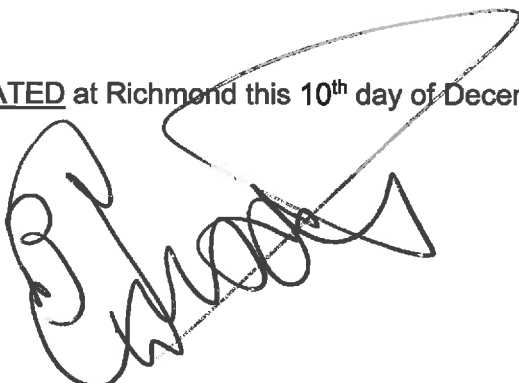 ATED at Richmond this 10th day of Decem